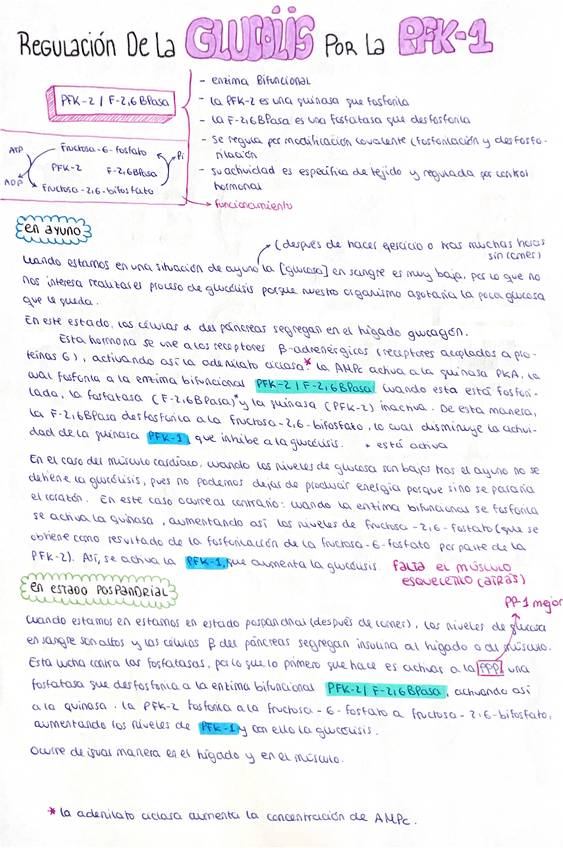 REGULACIÓN DE LA GLUCÓLIS POR LA PFK-1
PFK-2 / F-2,6 BPasa
- enzima Bifuncional
- la PFK-2 es una quinasa que fosforila
- la F-2,6BPasa es una fosfatasa que desfosforila
- se regula por modificación covalente (fosforilación y desfosfo-
rilación)
- su actividad es específica de tejido y regulada por control
hormonal
→ funcionamiento
Fructosa-6-fosfato
ATP
Pi
PFK-2 F-2,6BPasa
ADP
Fructosa-2,6-bifosfato
en ayuno
(después de hacer ejercicio o tras muchas horas
sin comer)
Cuando estamos en una situación de ayuno la [glucosa] en sangre es muy baja, por lo que no
nos interesa realizar el proceso de glucólisis porque nuestro organismo agotaría la poca glucosa
que le queda.
En este estado, las células α del páncreas segregan en el hígado glucagón.
Esta hormona se une a los receptores β-adrenérgicos (receptores acoplados a pro-
teínas G), activando así la adenilato ciclasa.* La AMPc activa a la quinasa PKA, la
cual fosforila a la enzima bifuncional PFK-2 / F-2,6BPasa. Cuando esta está fosfori-
lada, la fosfatasa (F-2,6BPasa)* y la quinasa (PFK-2) inactiva. De esta manera,
la F-2,6BPasa desfosforila a la fructosa-2,6-bifosfato, lo cual disminuye la activi-
dad de la quinasa PFK-1, que inhibe a la glucólisis. * está activa
En el caso del músculo cardíaco, cuando los niveles de glucosa son bajos tras el ayuno no se
detiene la glucólisis, pues no podemos dejar de producir energía porque sino se pararía
el corazón. En este caso ocurre al contrario: cuando la enzima bifuncional se fosforila
se activa la quinasa, aumentando así los niveles de fructosa-2,6-fosfato (que se
obtiene como resultado de la fosforilación de la fructosa-6-fosfato por parte de la
PFK-2). Así, se activa la PFK-1, que aumenta la glucólisis. FALTA EL MÚSCULO
ESQUELETICO (ATRÁS)
en estado pospandrial
PP-1 mejor
Cuando estamos en estamos en estado pospandrial (después de comer), los niveles de glucosa
en sangre son altos y las células β del páncreas segregan insulina al hígado o al músculo.
Esta lucha contra las fosfatasas, por lo que lo primero que hace es activar a la PPP1 una
fosfatasa que desfosforila a la enzima bifuncional PFK-2 / F-2,6BPasa, activando así
a la quinasa. La PFK-2 fosforila a la fructosa-6-fosfato a fructosa-2,6-bifosfato,
aumentando los niveles de PFK-1 y con ello la glucólisis.
Ocurre de igual manera en el hígado y en el músculo.
* la adenilato ciclasa aumenta la concentración de AMPc.